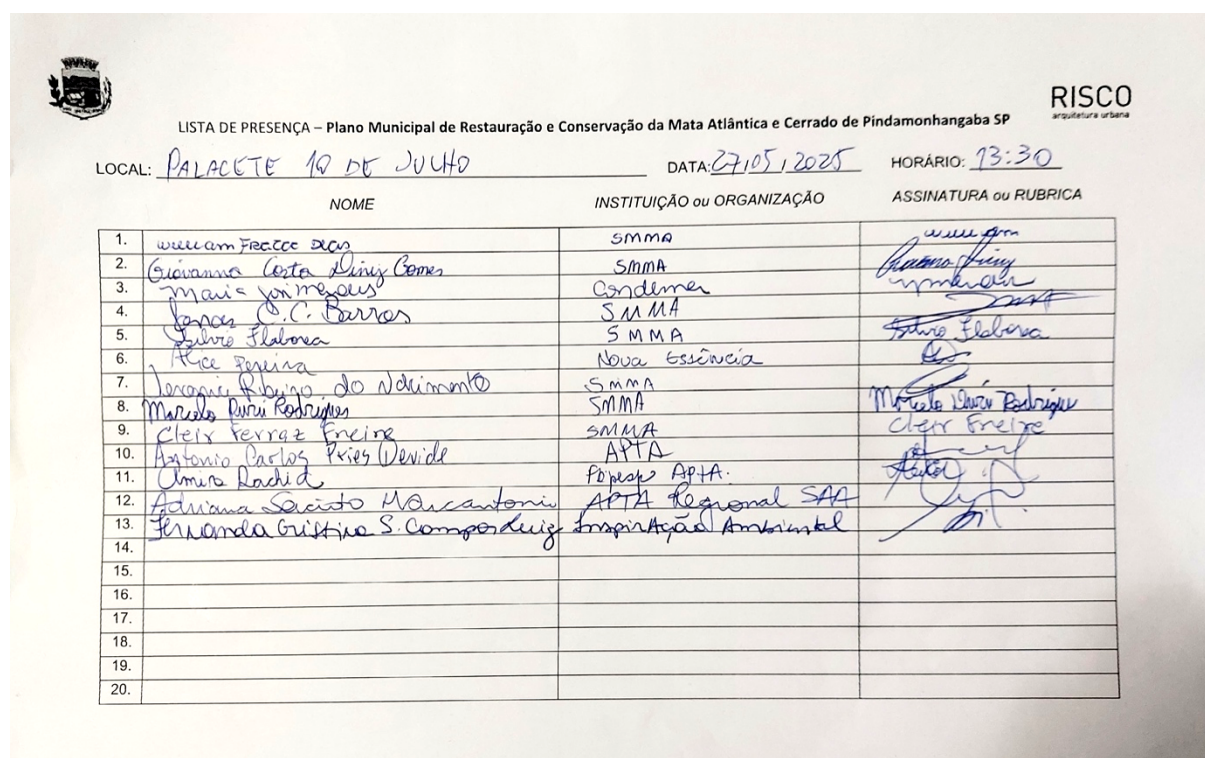 RISCO
arquitetura urbana
LISTA DE PRESENÇA – Plano Municipal de Restauração e Conservação da Mata Atlântica e Cerrado de Pindamonhangaba SP
LOCAL: PALACETE 10 DE JULHO DATA: 27/05/2025 HORÁRIO: 13:30
NOME INSTITUIÇÃO ou ORGANIZAÇÃO ASSINATURA ou RUBRICA
1. SMMA
2. Giovanna Costa Diniz Gomes SMMA
3. Maria Condema
4. C. Barros SMMA
5. Silvio Flaborea SMMA Silvio Flaborea
6. Alice Pereira Nova Essência
7. Ribeiro do SMMA
8. Marcelo Rodrigues SMMA Marcelo
9. Cleir Ferraz Freire SMMA Cleir Freire
10. Antonio Carlos Pries Devide APTA
11. Rachid APTA.
12. Adriana Marcantonio APTA Regional SAA
13. Fernanda Cristina S. Campos Luiz InspirAção Ambiental
14.
15.
16.
17.
18.
19.
20.